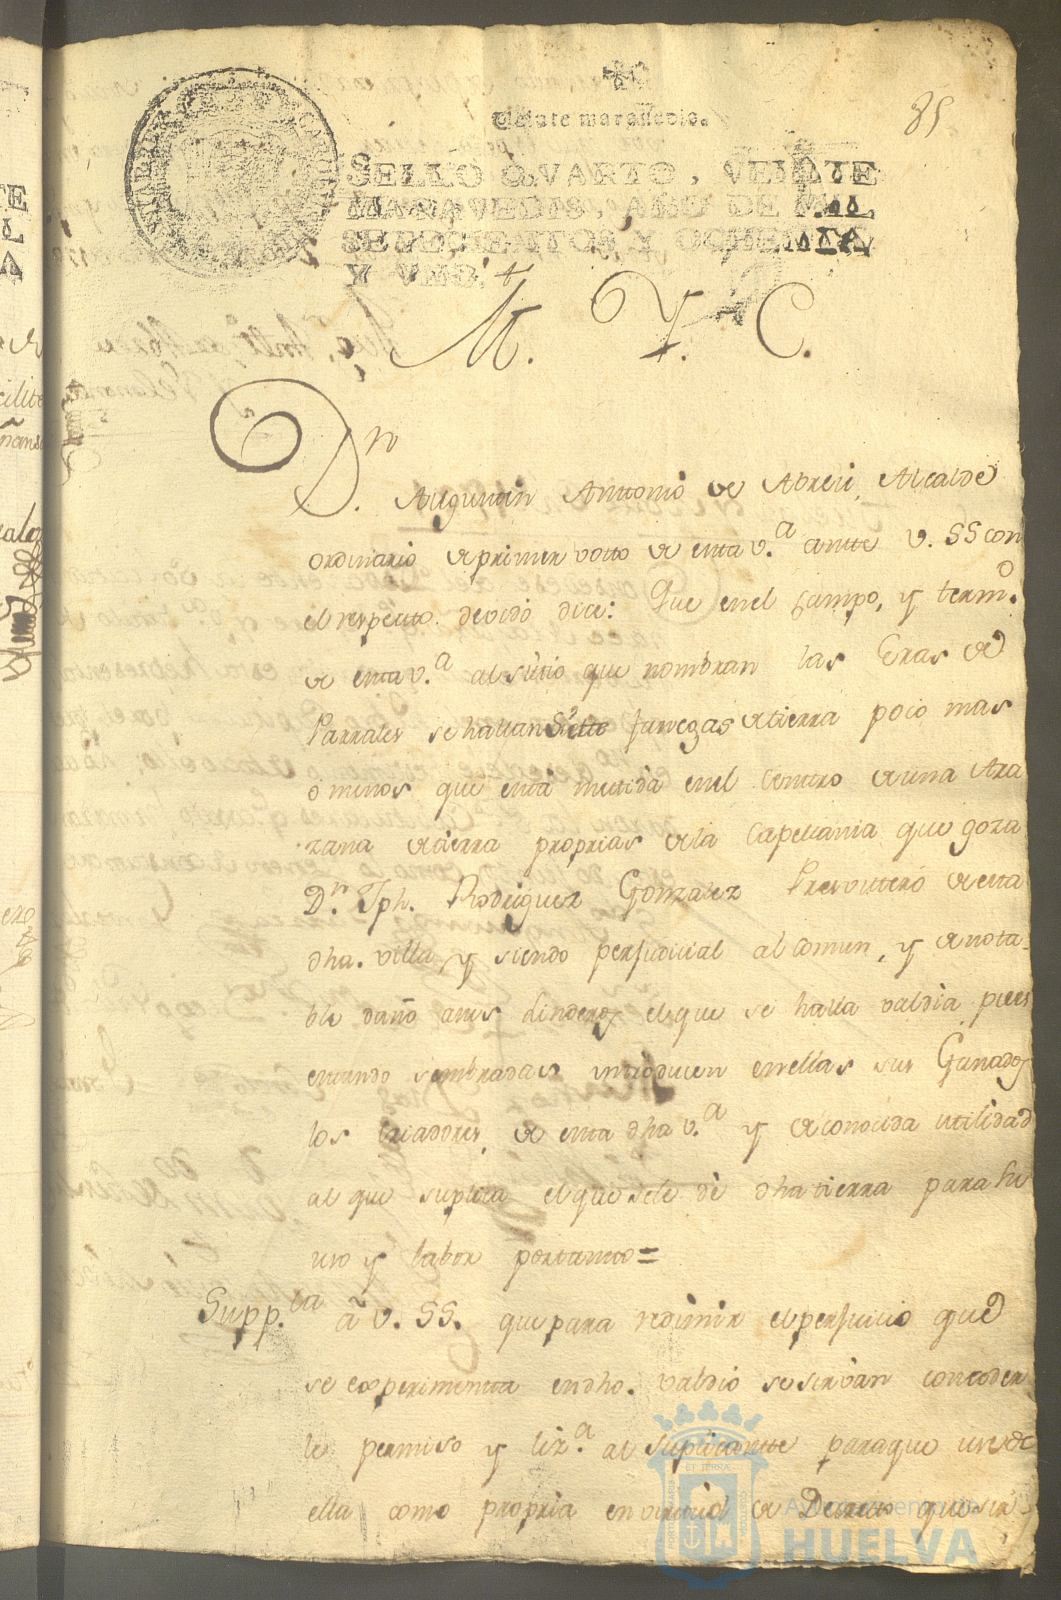 85
Veinte maravedis.
SELLO QVARTO, VEINTE
MARAVEDIS, AÑO DE MIL
SETECIENTOS Y OCHENTA
Y VNO.
M. Y. C.
Dn
D. Augustin Antonio de Abreu, Alcalde
ordinario de primer votto de esta v.a antte V. SS con
el respecto devido dice: Que en el campo, y term.o
de esta v.a al sitio que nombran las Eras de
Parrales se hallan siette fanegas de tierra poco mas
o menos que està metida en el Centro de una Ara
zana de tierra proprias de la Capellania que goza
D.n Jph. Rodriguez Gonzalez Presvitero de esta
dha. villa, y siendo perjudicial al comun, y de nota-
ble daño a mis linderos el que se halla valdia pues
estando sembradas introducen en ellas sus Ganados
los criadores de esta dha v.a y de conocida utilidad
al que suplica el que se le dè dha tierra para su
uso y labor por tanto=
Supp.ca à V. SS. que para redimir el perjuicio que
se experimenta en dho. valdio se sirvan conceder
le permiso y liz.a al suplicantte para que use de
ella como propria en virtud de Decreto que sir
Ayuntamiento de
HUELVA